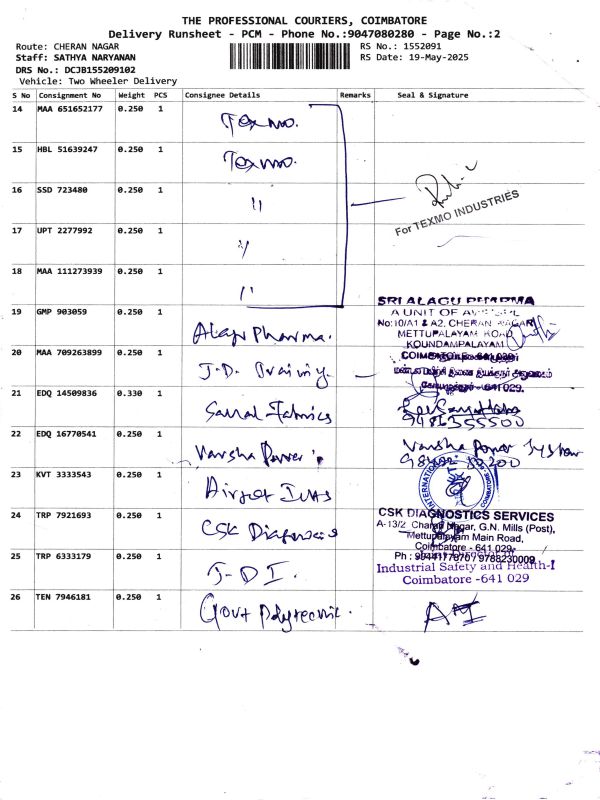 THE PROFESSIONAL COURIERS, COIMBATORE
Delivery Runsheet - PCM - Phone No.:9047080280 - Page No.:2
Route: CHERAN NAGAR
RS No.: 1552091
Staff: SATHYA NARYANAN
RS Date: 19-May-2025
DRS No.: DCJB155209102
Vehicle: Two Wheeler Delivery
S No Consignment No Weight PCS Consignee Details Remarks Seal & Signature
14 MAA 651652177 0.250 1 Texmo.
15 HBL 51639247 0.250 1 Texmo.
16 SSD 723480 0.250 1 "
For TEXMO INDUSTRIES
17 UPT 2277992 0.250 1 "
18 MAA 111273939 0.250 1 "
SRI ALAGU PHARMA
A UNIT OF
No:10/A1 & A2, CHERAN NAGAR
METTUPALAYAM ROAD
KOUNDAMPALAYAM
COIMBATORE - 641 029
19 GMP 903059 0.250 1 Alagu Pharma.
20 MAA 709263899 0.250 1 J.D.
- 641 029.
21 EDQ 14509836 0.330 1 Fabrics
22 EDQ 16770541 0.250 1 Varsha Power
Varsha Power
23 KVT 3333543 0.250 1 Airport
INTERNATIONAL
COIMBATORE
24 TRP 7921693 0.250 1 CSK
CSK DIAGNOSTICS SERVICES
A-13/2 Charan Nagar, G.N. Mills (Post),
Mettupalayam Main Road,
Coimbatore - 641 029.
25 TRP 6333179 0.250 1 J-D I.
Ph : 9788230009
Industrial Safety and Health-I
Coimbatore -641 029
26 TEN 7946181 0.250 1 Govt Polytechnic.